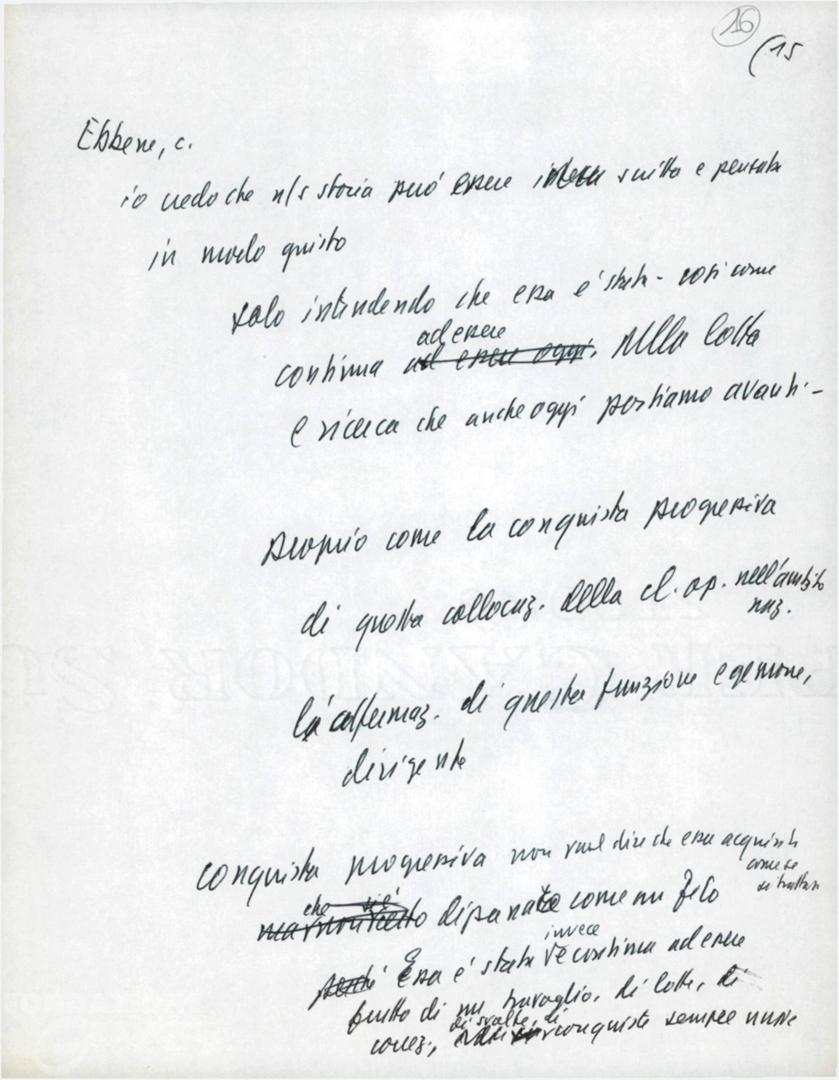 16
(15
Ebbene, c.
io credo che n/s storia può essere scritta e pensata
in modo giusto
solo intendendo che essa è stata - così come
ad essere
continua ad essere oggi, nella lotta
e ricerca che anche oggi portiamo avanti -
proprio come la conquista progressiva
di questa collocaz. della cl. op. nell'ambito
naz.
l'affermaz. di questa funzione egemone,
dirigente
conquista progressiva non vuol dire che essa acquisti
come se
si trattasse
che si è
dipanata come un filo
invece
perché Essa è stata e continua ad essere
frutto di un travaglio, di lotte, di
di svolte, di
correz., conquiste sempre nuove